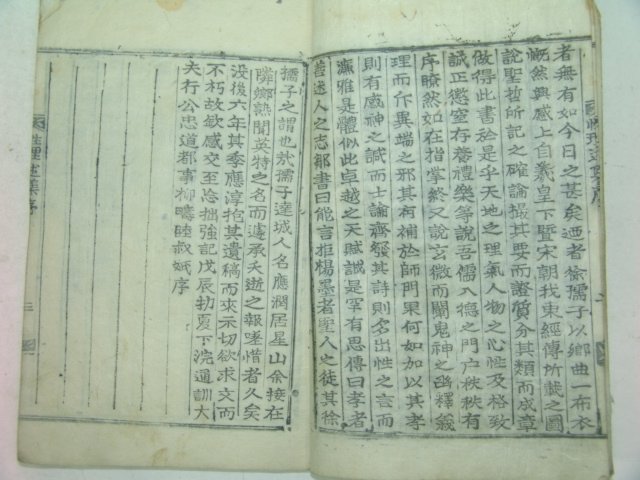 者無有如今日之甚矣迺者徐孺子以鄉曲一布衣
慨然興感上自羲皇下暨宋朝我東經傳所載之圖
說聖哲所記之確論撮其要而證質分其類而成章
做得此書於是乎天地之理氣人物之心性及格致
誠正懲窒存養禮樂等說吾儒入德之門戶秩秩有
序瞭然如在指掌終又說玄微而闡鬼神之幽釋義
理而斥異端之邪其有補於師門果何如如加以其孝
則有感神之誠而士論齊發其詩則名出性之言而
濂雅是體似此卓越之天賦誠是罕有思傳曰孝者
善述人之志鄒書曰能言拒楊墨者聖人之徒其徐
孺子之謂也欤孺子達城人名應潤居星山余接在
隣鄉熟聞英特之名而遽承夭逝之報嗟惜者久矣
没後六年其季應淳抱其遺稿而來示切欲求文而
不朽故敏感交至忘拙強記戊辰初夏下浣通訓大
夫行公忠道都事柳疇睦叔斌序
性理述集序